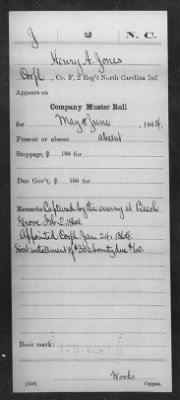 J 2 N. C.
Henry A. Jones
Corpl., Co. F, 2 Reg't North Carolina Inf.
Appears on
Company Muster Roll
for May & June, 1864.
Present or absent absent
Stoppage, $ 100 for
Due Gov't, $ 100 for
Remarks: Captured by the enemy at Beech
Grove Feb. 2, 1864.
Appointed Corpl. Jan 24, 1864.
First installment of $50 bounty due
Book mark:
Woods
Copyist.